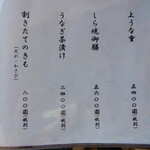 上うな重　五四〇〇圓(税別)
しら焼御膳　五六〇〇圓(税別)
うなぎ茶漬け　二四〇〇圓(税別)
割きたてのきも　八〇〇圓(税別)